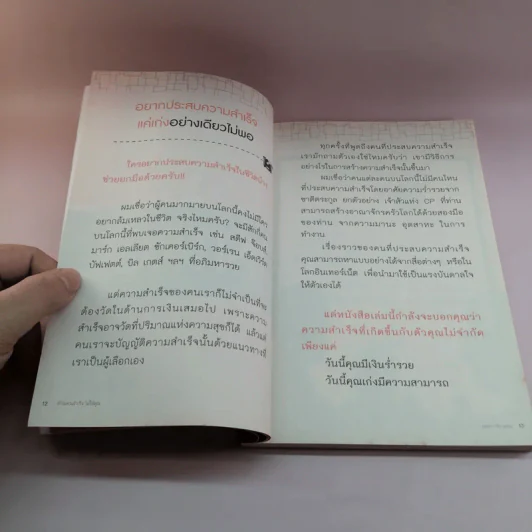 อยากประสบความสำเร็จ
แค่เก่งอย่างเดียวไม่พอ
ใครอยากประสบความสำเร็จในชีวิตบ้าง
ช่วยยกมือด้วยครับ!!
ผมเชื่อว่าผู้คนมากมายบนโลกนี้คงไม่มีใคร
อยากล้มเหลวในชีวิต จริงไหมครับ?
บนโลกนี้ที่พบเจอความสำเร็จ เช่น สตีฟ จ็อบส์,
มาร์ก เอลเลียต ซักเคอร์เบิร์ก, วอร์เรน เอ็ดเวิร์ด
บัฟเฟตต์, บิล เกตส์ ฯลฯ ที่อภิมหารวย
แต่ความสำเร็จของคนเราก็ไม่จำเป็นที่จะ
ต้องวัดในด้านการเงินเสมอไป เพราะความ
สำเร็จอาจวัดที่ปริมาณแห่งความสุขก็ได้ แล้วแต่
คนเราจะบัญญัติความสำเร็จนั้นด้วยแนวทางที่
เราเป็นผู้เลือกเอง
12
ทุกครั้งที่พูดถึงคนที่ประสบความสำเร็จ
เรามักถามตัวเองใช่ไหมครับว่า เขามีวิธีการ
อย่างไรในการสร้างความสำเร็จนั้นขึ้นมา
ผมเชื่อว่าคนแต่ละคนบนโลกนี้ไม่มีคนไหน
ที่ประสบความสำเร็จโดยอาศัยความร่ำรวยจาก
ชาติตระกูล ยกตัวอย่าง เจ้าสัวแห่ง CP ที่ท่าน
สามารถสร้างอาณาจักรครัวโลกได้ด้วยสองมือ
ของท่าน จากความมานะ อุตสาหะ ในการ
ทำงาน
เรื่องราวของคนที่ประสบความสำเร็จ
คุณสามารถหาแบบอย่างได้จากสื่อต่างๆ หรือใน
โลกอินเทอร์เน็ต เพื่อนำมาใช้เป็นแรงบันดาลใจ
ให้ตัวเองได้
แต่หนังสือเล่มนี้กำลังจะบอกคุณว่า
ความสำเร็จที่เกิดขึ้นกับตัวคุณไม่จำกัด
เพียงแค่
วันนี้คุณมีเงินร่ำรวย
วันนี้คุณเก่งมีความสามารถ